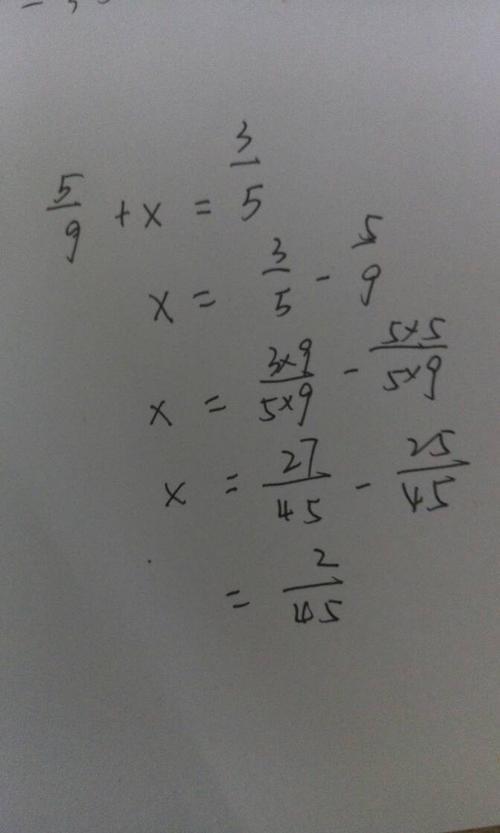 5/9 + x = 3/5
x = 3/5 - 5/9
x = 3×9/5×9 - 5×5/5×9
x = 27/45 - 25/45
= 2/45